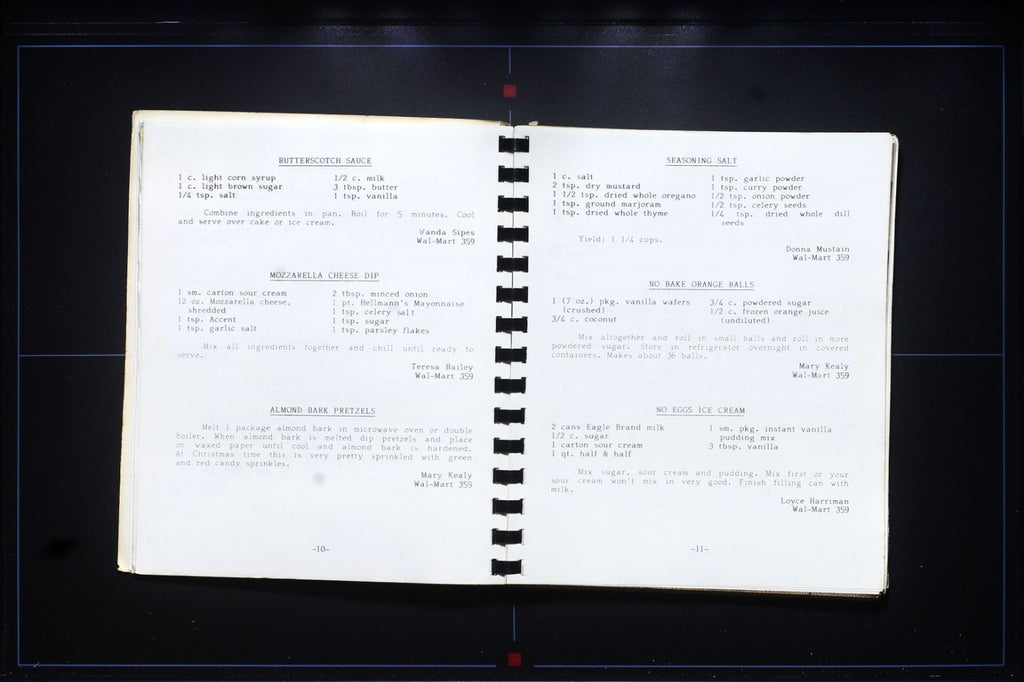 BUTTERSCOTCH SAUCE
1 c. light corn syrup 1/2 c. milk
1 c. light brown sugar 3 tbsp. butter
1/4 tsp. salt 1 tsp. vanilla
Combine ingredients in pan. Boil for 5 minutes. Cool
and serve over cake or ice cream.
Wanda Sipes
Wal-Mart 359
MOZZARELLA CHEESE DIP
1 sm. carton sour cream 2 tbsp. minced onion
12 oz. Mozzarella cheese, 1 pt. Hellmann's Mayonnaise
shredded 1 tsp. celery salt
1 tsp. Accent 1 tsp. sugar
1 tsp. garlic salt 1 tsp. parsley flakes
Mix all ingredients together and chill until ready to
serve.
Teresa Bailey
Wal-Mart 359
ALMOND BARK PRETZELS
Melt 1 package almond bark in microwave oven or double
boiler. When almond bark is melted dip pretzels and place
on waxed paper until cool and almond bark is hardened.
At Christmas time this is very pretty sprinkled with green
and red candy sprinkles.
Mary Kealy
Wal-Mart 359
-10-
SEASONING SALT
1 c. salt 1 tsp. garlic powder
2 tsp. dry mustard 1 tsp. curry powder
1 1/2 tsp. dried whole oregano 1/2 tsp. onion powder
1 tsp. ground marjoram 1/2 tsp. celery seeds
1 tsp. dried whole thyme 1/4 tsp. dried whole dill
seeds
Yield: 1 1/4 cups.
Donna Mustain
Wal-Mart 359
NO BAKE ORANGE BALLS
1 (7 oz.) pkg. vanilla wafers 3/4 c. powdered sugar
(crushed) 1/2 c. frozen orange juice
3/4 c. coconut (undiluted)
Mix altogether and roll in small balls and roll in more
powdered sugar. Store in refrigerator overnight in covered
containers. Makes about 36 balls.
Mary Kealy
Wal-Mart 359
NO EGGS ICE CREAM
2 cans Eagle Brand milk 1 sm. pkg. instant vanilla
1/2 c. sugar pudding mix
1 carton sour cream 3 tbsp. vanilla
1 qt. half & half
Mix sugar, sour cream and pudding. Mix first or your
sour cream won't mix in very good. Finish filling can with
milk.
Loyce Harriman
Wal-Mart 359
-11-